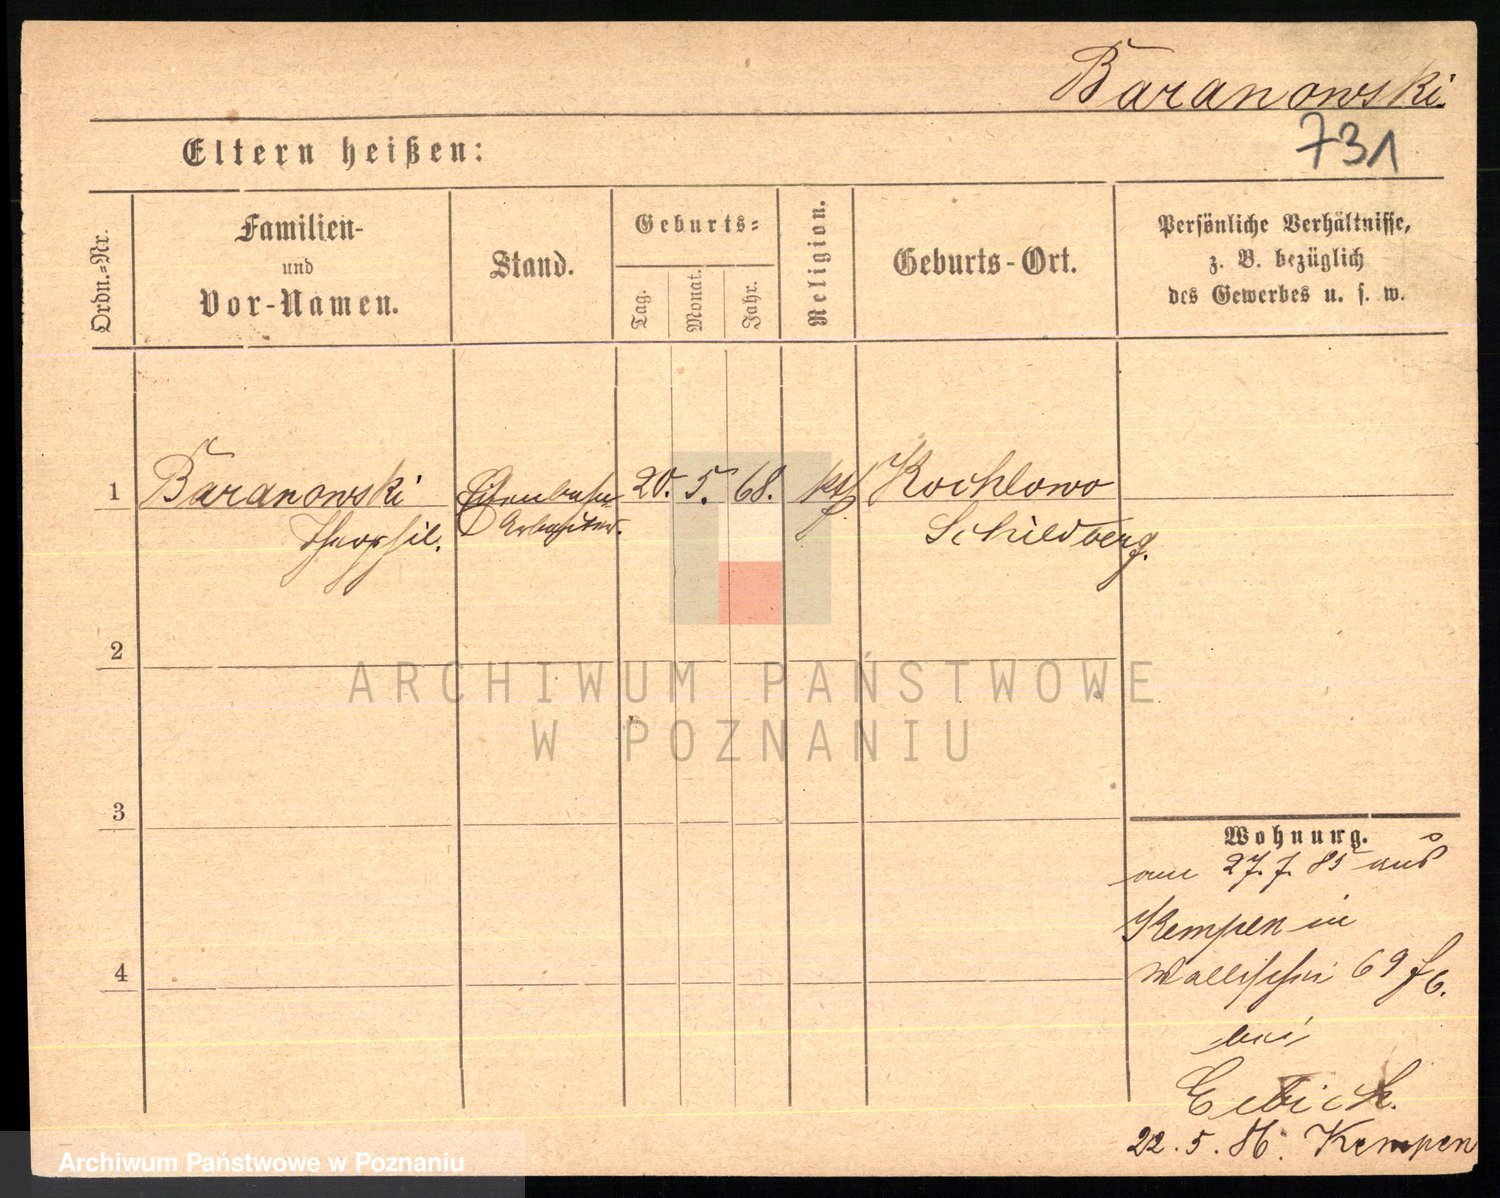 Baranowski.
731
Eltern heißen:
Ordn.=Nr.
Familien-
und
Vor-Namen.
Stand.
Geburts=
Tag.
Monat.
Jahr.
Religion.
Geburts-Ort.
Persönliche Verhältnisse,
z. B. bezüglich
des Gewerbes u. s. w.
1 Baranowski Eisenbahn 20. 5. 68. kth Kochlowo
Theophil. Arbeiter. Schildberg.
2
3
4
Wohnung.
am 27.7.85 aus
Kempen in
Wallischei 69
bei
22.5.86. Kempen
ARCHIWUM PAŃSTWOWE
W POZNANIU
Archiwum Państwowe w Poznaniu